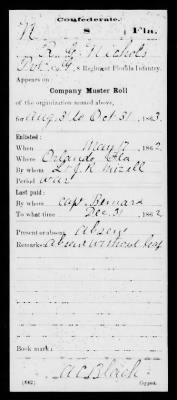 Confederate.
N 8 Fla.
R. G. Nichols
Pvt, Co. , 8 Regiment Florida Infantry.
Appears on
Company Muster Roll
of the organization named above,
for Aug 31 to Oct 31, 1863.
Enlisted:
When May 17, 1862
Where Orlando Fla
By whom Lt J. R. Mizell
Period War
Last paid:
By whom Capt. Bernard
To what time Dec 31, 1862
Present or absent Absent
Remarks: Absent without leave
Book mark:
A C Black
(642) Copyist.